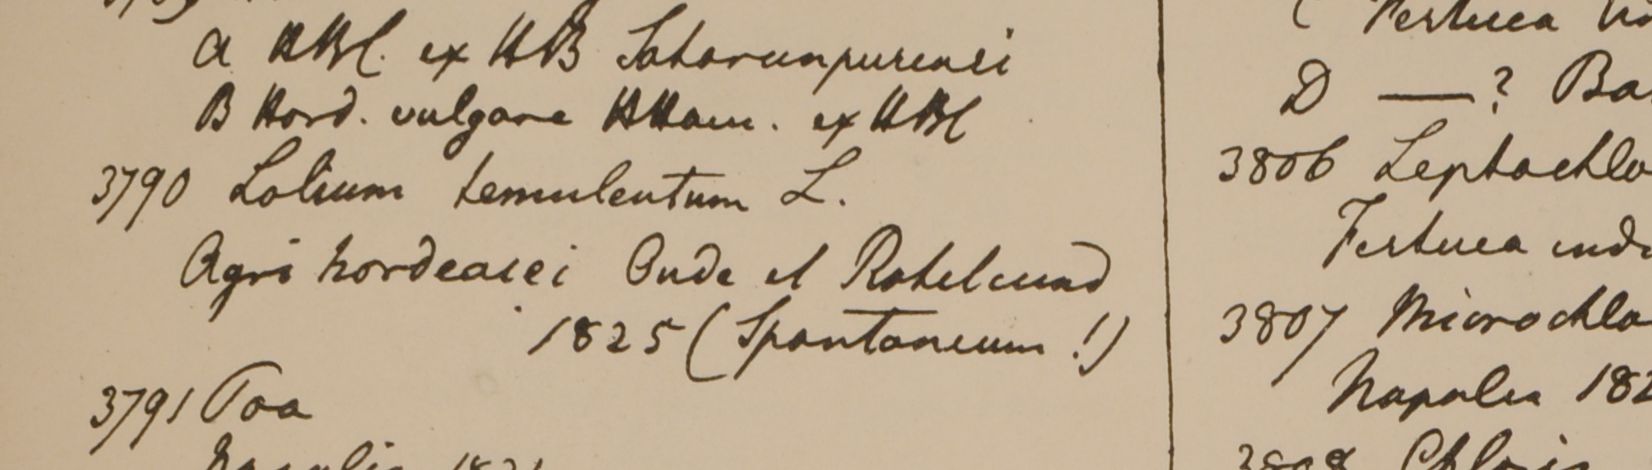 A HBC. ex HB Saharunpurensi
B Hord. vulgare HHam. ex HBC
3790 Lolium temulentum L.
Agri hordeacei Oude et Rohelcund
1825 (Spontaneum !)
3791 Poa
Festuca
D —? Ba
3806 Leptochlo
Festuca indi
3807 Microchlo
Napalia 182
3808 Chloris